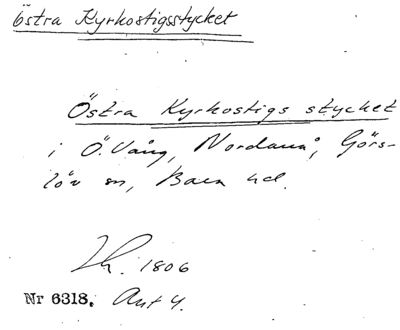 Östra Kyrkostigsstycket
Östra Kyrkostigs stycket
i Ö. Vång, Nordanå, Görs-
löv sn, Bara hd.
Lh. 1806
Nr 6318. Akt 4.